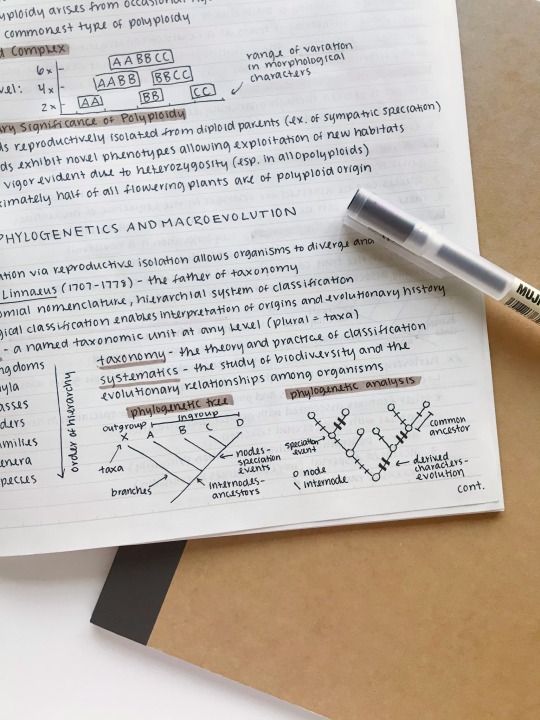 polyploidy arises from occasional
commonest type of polyploidy
Complex
AABBCC
6x
AABB BBCC
level: 4x
AA BB CC
2x
range of variation
in morphological
characters
Significance of Polyploidy
reproductively isolated from diploid parents (ex. of sympatric speciation)
exhibit novel phenotypes allowing exploitation of new habitats
vigor evident due to heterozygosity (esp. in allopolyploids)
approximately half of all flowering plants are of polyploid origin
PHYLOGENETICS AND MACROEVOLUTION
via reproductive isolation allows organisms to diverge and
Linnaeus (1707-1778) - the father of taxonomy
nomenclature, hierarchial system of classification
classification enables interpretation of origins and evolutionary history
- a named taxonomic unit at any level (plural = taxa)
taxonomy - the theory and practice of classification
systematics - the study of biodiversity and the
evolutionary relationships among organisms
order of hierarchy
phylogenetic tree
outgroup
ingroup
X A B C D
taxa
branches
nodes-
speciation
events
internodes-
ancestors
phylogenetic analysis
speciation
event
o node
\ internode
common
ancestor
derived
characters-
evolution
cont.
MUJI